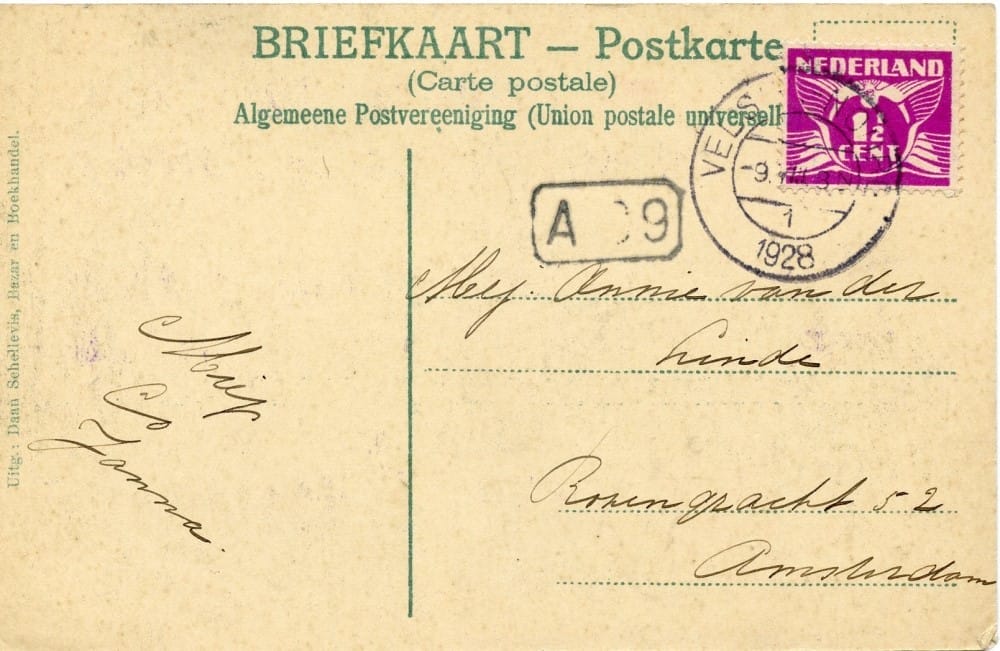 BRIEFKAART — Postkarte
(Carte postale)
Algemeene Postvereeniging (Union postale universell
NEDERLAND
1½
CENT
VELS
1
1928
A 9
Mej. Annie van der
Linde
Rozengracht 52
Amsterdam
Miep
Co
Janna.
Uitg.: Daan Schellevis, Bazar en Boekhandel.